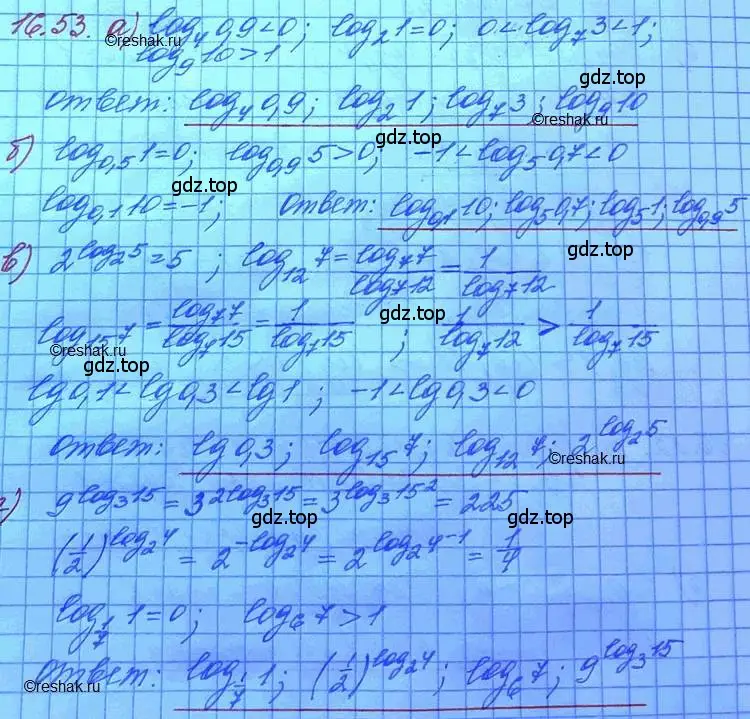 16.53. а) log₄0,9<0; log₂1=0; 0<log₇3<1;
©reshak.ru
log₉10>1
gdz.top
Ответ: log₄0,9; log₂1; log₇3; log₉10
©reshak.ru
gdz.top
б) log₀,₅1=0; log₀,₉5>0; -1<log₅0,7<0
gdz.top
©reshak.ru
log₀,₁10=-1; Ответ: log₀,₁10; log₅0,7; log₅1; log₀,₉5
gdz.top
в) 2^(log₂5)=5; log₁₂7=log₇7/log₇12=1/log₇12
©reshak.ru
gdz.top
log₁₅7=log₇7/log₇15=1/log₇15; 1/log₇12>1/log₇15
©reshak.ru
gdz.top
lg0,1<lg0,3<lg1; -1<lg0,3<0
gdz.top
Ответ: lg0,3; log₁₅7; log₁₂7; 2^(log₂5)
©reshak.ru
г) 9^(log₃15)=3^(2log₃15)=3^(log₃15²)=225
gdz.top
(1/2)^(log₂4)=2^(-log₂4)=2^(log₂4⁻¹)=1/4
gdz.top
log_(1/7)1=0; log₆7>1
gdz.top
Ответ: log_(1/7)1; (1/2)^(log₂4); log₆7; 9^(log₃15)
©reshak.ru
gdz.top